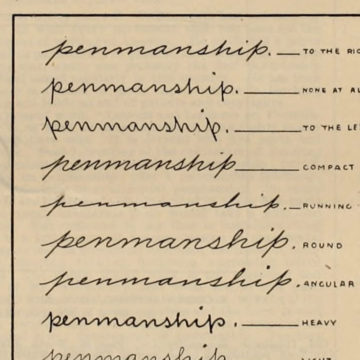 penmanship. — TO THE RIG
penmanship. — NONE AT AL
penmanship. — TO THE LE
penmanship — COMPACT
penmanship. — RUNNING
penmanship. ROUND
penmanship. ANGULAR
penmanship. — HEAVY
penmanship LIGHT